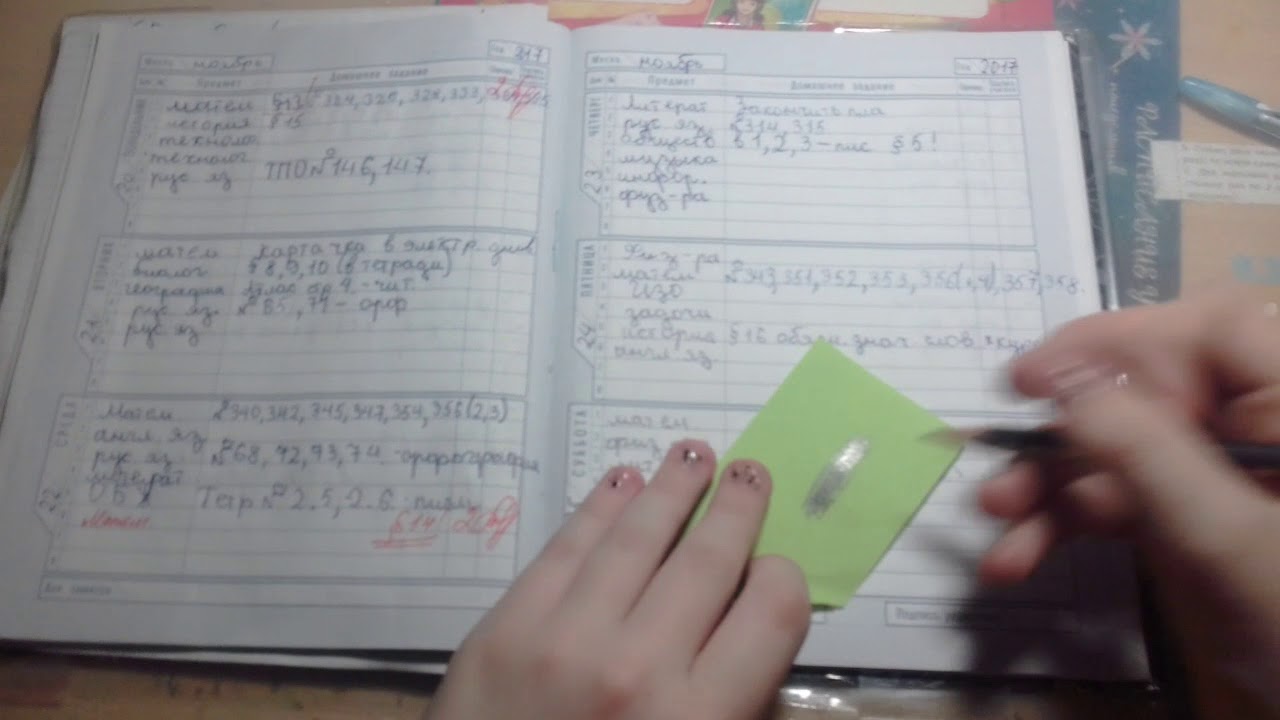 Месяц ноябрь Год 217
Предмет Домашнее задание
ПОНЕДЕЛЬНИК 20
матем §13 324, 326, 328, 333,
история §15
технолог
технолог
рус яз ТПО №146, 147.
ВТОРНИК 21
матем карта чка в электр. днев
биолог §8, 9, 10 (в тетради)
география Атлас стр 4 - чит.
рус яз. №65, 71 - орф
рус яз
СРЕДА 22
матем №340, 342, 345, 347, 354, 356(2,3)
англ яз
рус яз №68, 72, 73, 74 - орфография
литерат
ОБЖ Тетр № 2.5, 2.6.
Матем §14
Месяц ноябрь Год 2017
Предмет Домашнее задание
ЧЕТВЕРГ 23
Литерат Закончить пла
рус яз. №314, 315
обществ §1, 2, 3 - пис §5!
музыка
инфор..
физ-ра
ПЯТНИЦА 24
Физ-ра
матем №343, 351, 352, 353, 356(1,4), 357, 358.
ИЗО
задачи
история §16 знач слов
англ яз
СУББОТА
матем
физ
Подпись
РАСПИСАНИЕ У